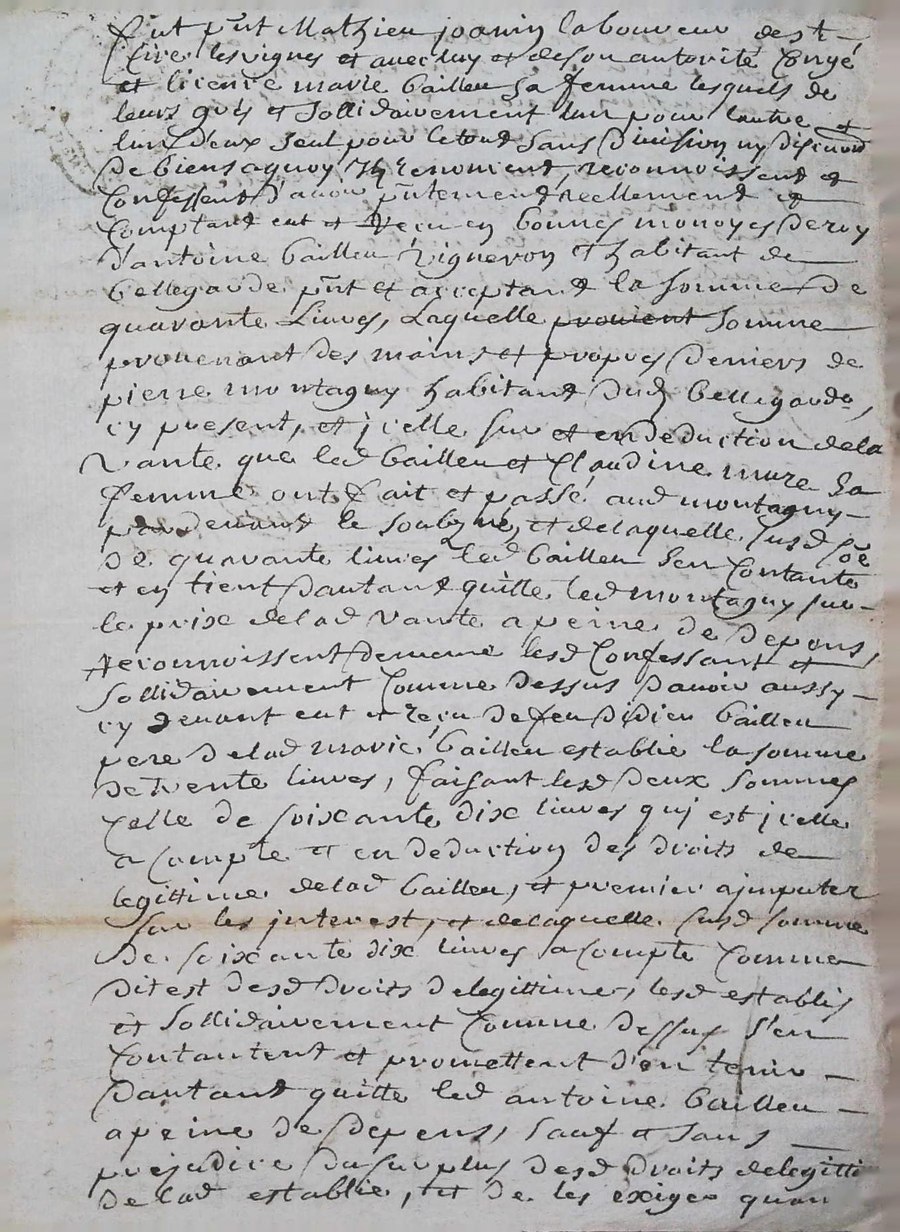 fut pnt Mathieu joanin laboureur de st -
Cire les vignes et avec luy et de son autorité Congé
et licence marie bailleu sa femme lesquels de
leurs grés et sollidairement lun pour lautre et
lun d'eux seul pour le tout sans Division ny discution
de biens aquoy ils renoncent, reconnoissent et
Confessent d'avoir pntement reellement et
Comptant eut et reçu en bonnes monoyes de roy
d'antoine bailleu vigneron et habitant de
bellegarde pnt et acceptant la somme de
quarante Livres, Laquelle provient somme
provenant des mains et propres deniers de
pierre montagny habitant dud bellegarde,
cy present, et jcelle sur et en deduction de la
vante que led bailleu et Claudine mure sa
femme ont fait et passé aud montagny -
par devant le soubzné, et de laquelle susd soe
de quarante livres led bailleu sen Contante
et en tient dautant quitte led montagny sur -
le prix de lad vante a peine de depens,
reconnoissent de meme lesd Confessant et
sollidairement Comme dessus d'avoir aussy -
cy devant eut et reçu de feu didieu bailleu
pere de lad marie bailleu establie la somme
de trente livres, faisant lesd deux sommes
celle de soixante dix livres qui est jcelle
a compte et en deduction des droits de
legittime de lad bailleu, et premier a jmputer
sur les jnterest, et de laquelle susd somme
de soixante dix livres a compte Comme
dit est desd droits de legittime, lesd establis
et sollidairement Comme dessus s'en
Contantent et promettent d'en tenir -
dautant quitte led antoine bailleu -
a peine de depens, sauf et sans
prejudice du surplus desd droits de legitti
de lad establie, et de les exiger quan